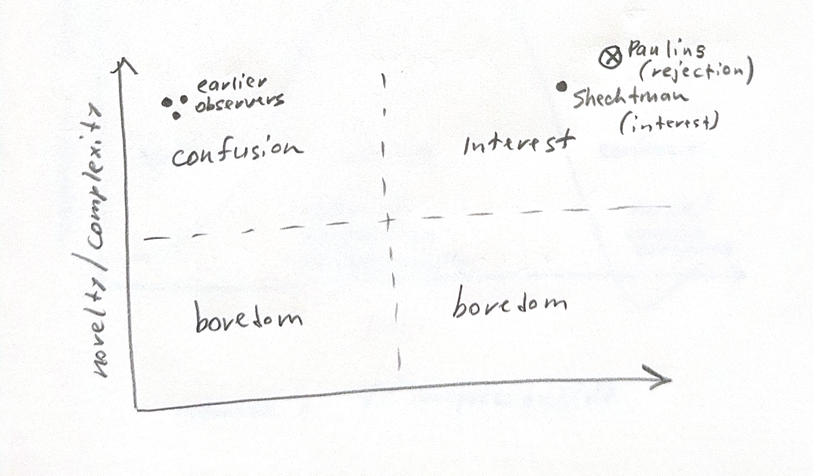 Pauling
(rejection)
earlier
observers
Shechtman
(interest)
confusion
Interest
novelty/complexity
boredom
boredom